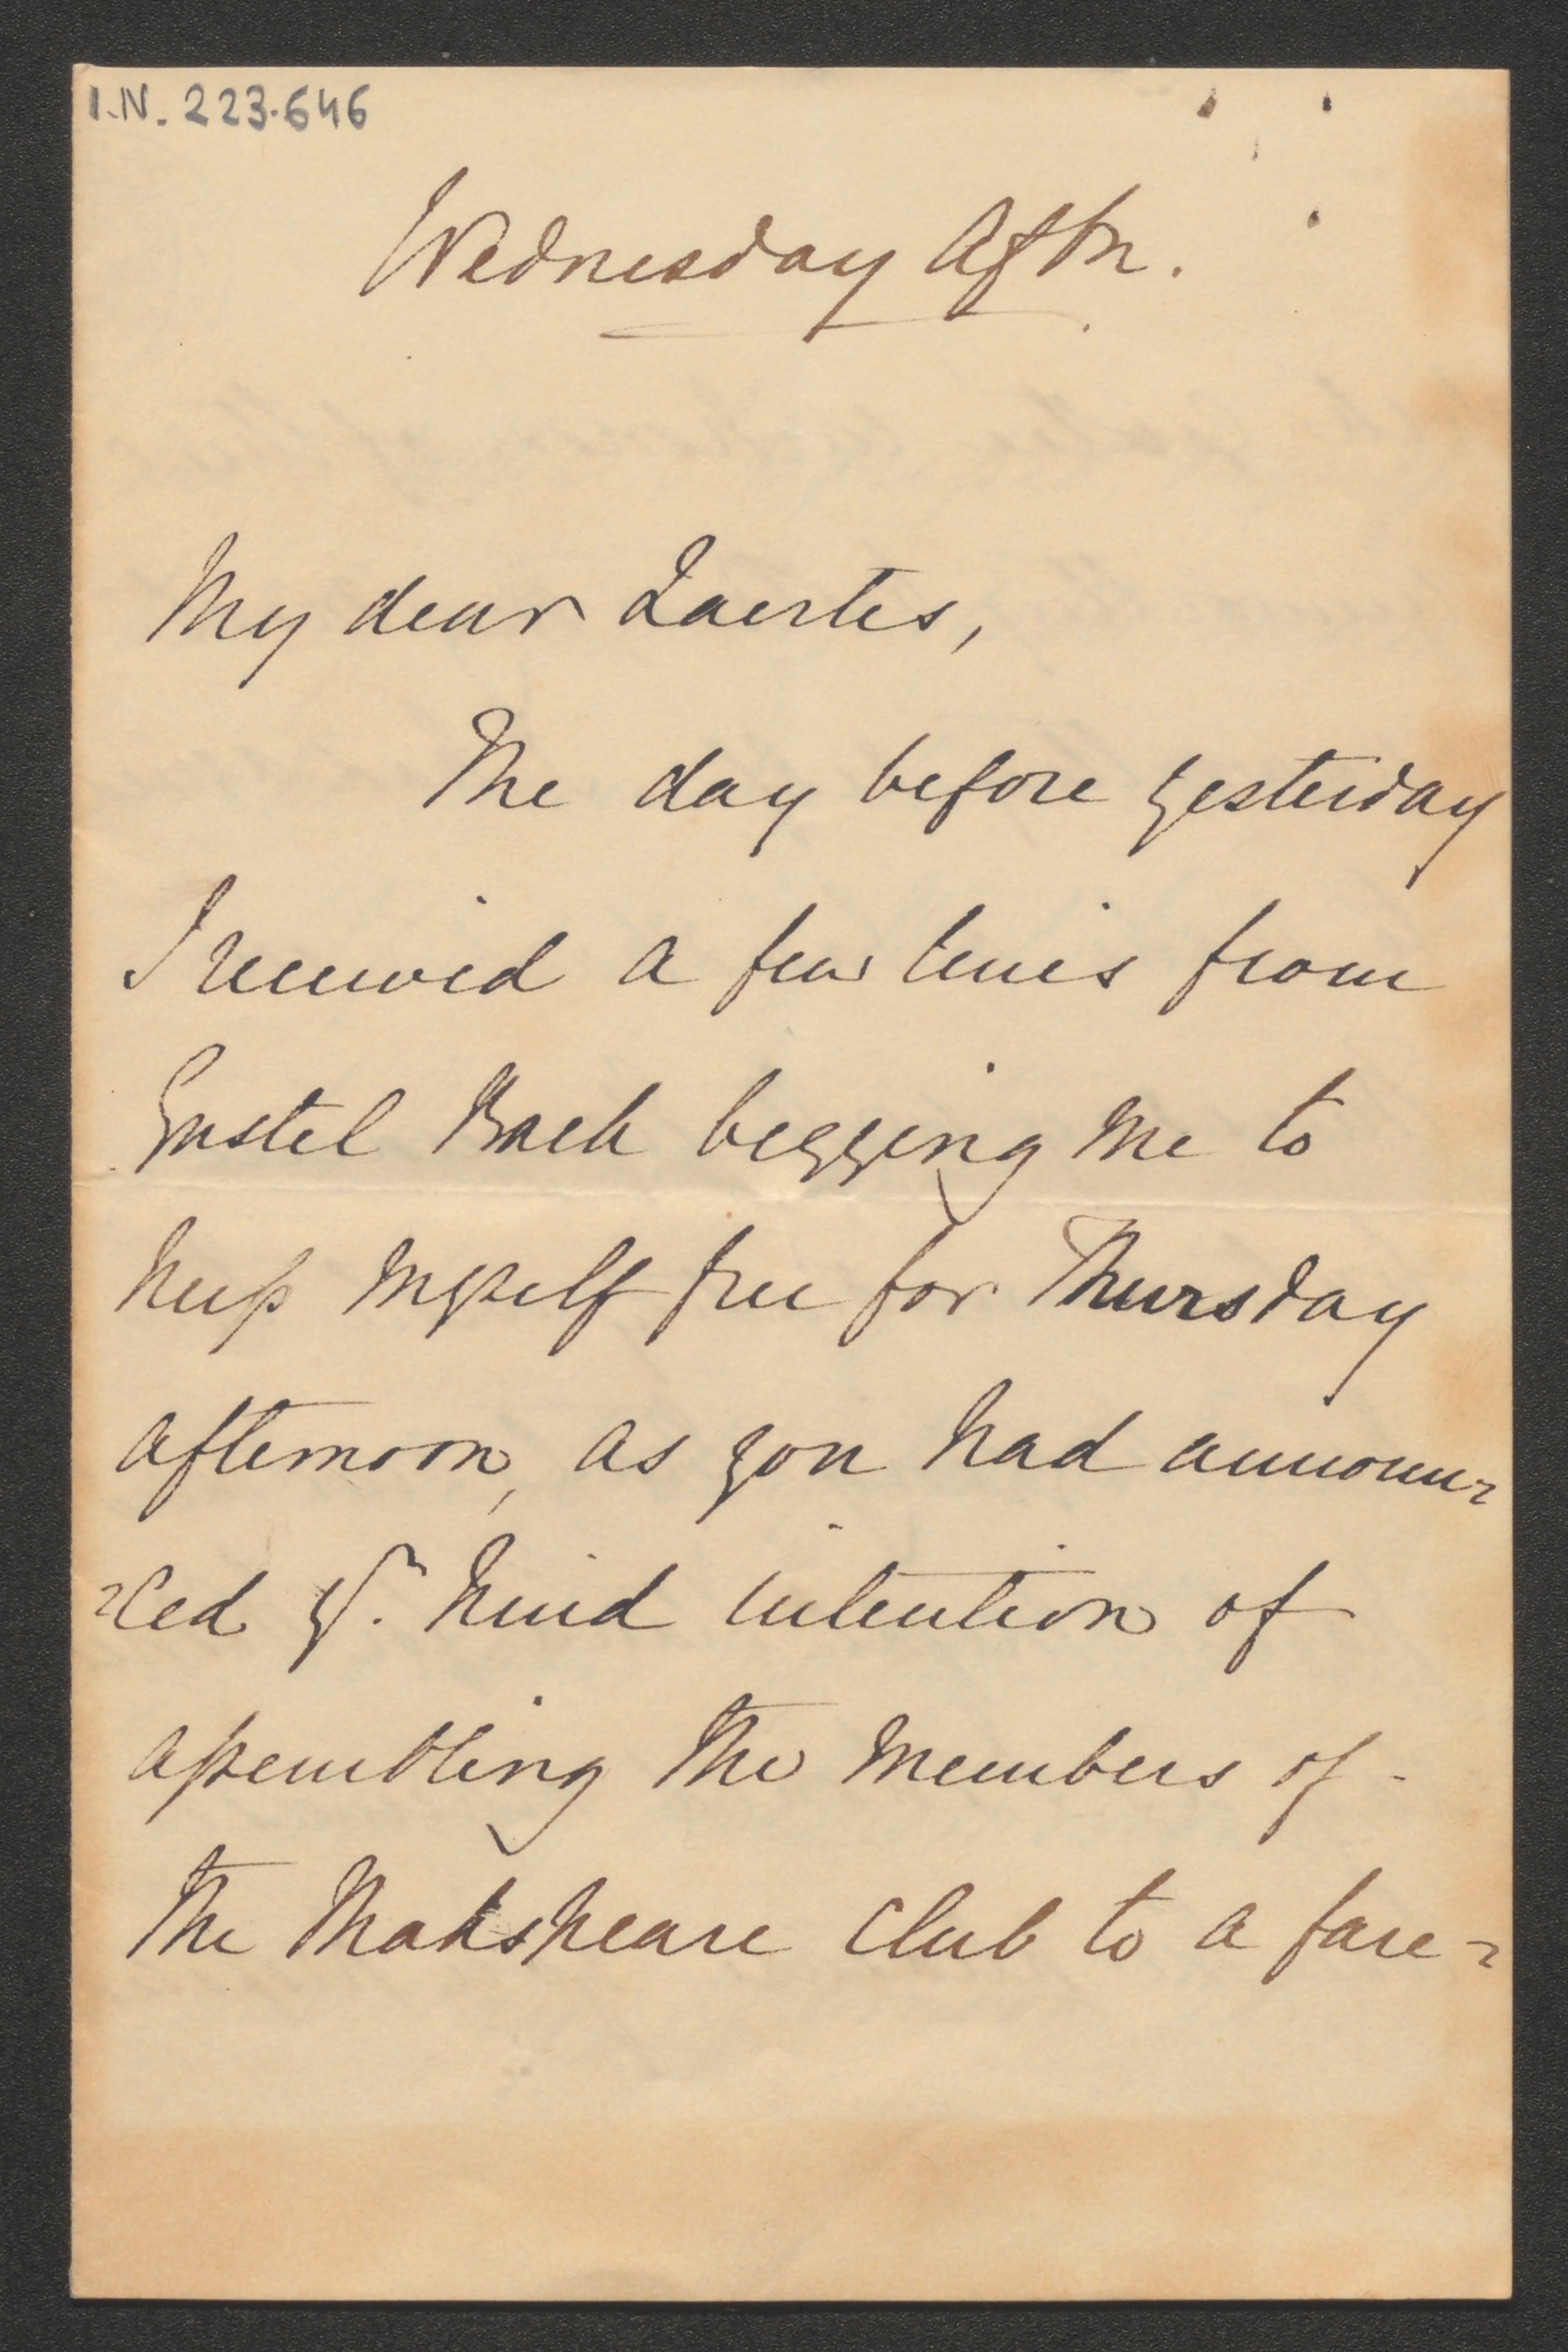 I.N. 223.646
Wednesday Aftn.
My dear Laertes,
The day before yesterday
I received a few lines from
Gustel Bach begging me to
keep myself free for Thursday
afternoon, as you had announ=
=ced yr. kind intention of
assembling the members of
the Shakspeare Club to a fare=